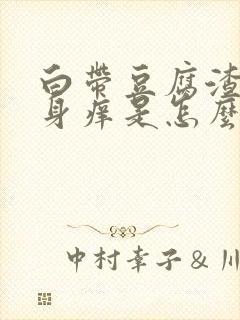 白带豆腐渣
身痒是怎麼
中村幸子&川